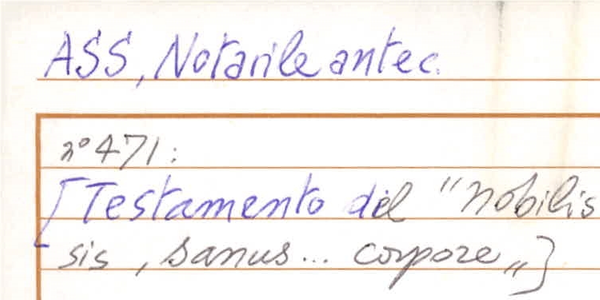 ASS, Notarile antec.
n° 471:
[Testamento del "nobilis
sis, sanus... corpore„]